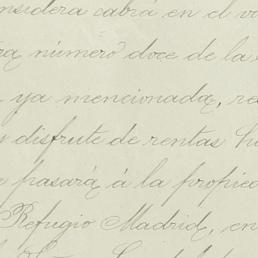 nsidera cabrá en el v
ra número doce de la
ya mencionada, re
disfrute de rentas h
e pasará á la propied
Refugio Madrid, en